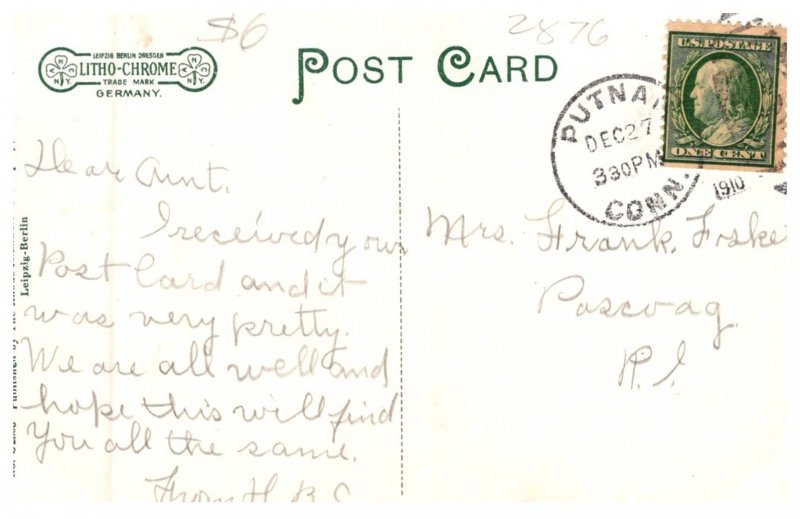 $6
2876
LEIPZIG BERLIN DRESDEN
LITHO-CHROME
TRADE MARK
GERMANY.
POST CARD
U.S. POSTAGE
ONE CENT
PUTNAM
DEC 27
330 PM
1910
CONN.
Dear Aunt.
I received your
Post Card and it
was very pretty.
We are all well and
hope this will find
You all the same.
From H. B. C
Mrs. Frank. Fiske
Pascoag
R. I.
Leipzig-Berlin
Published by The